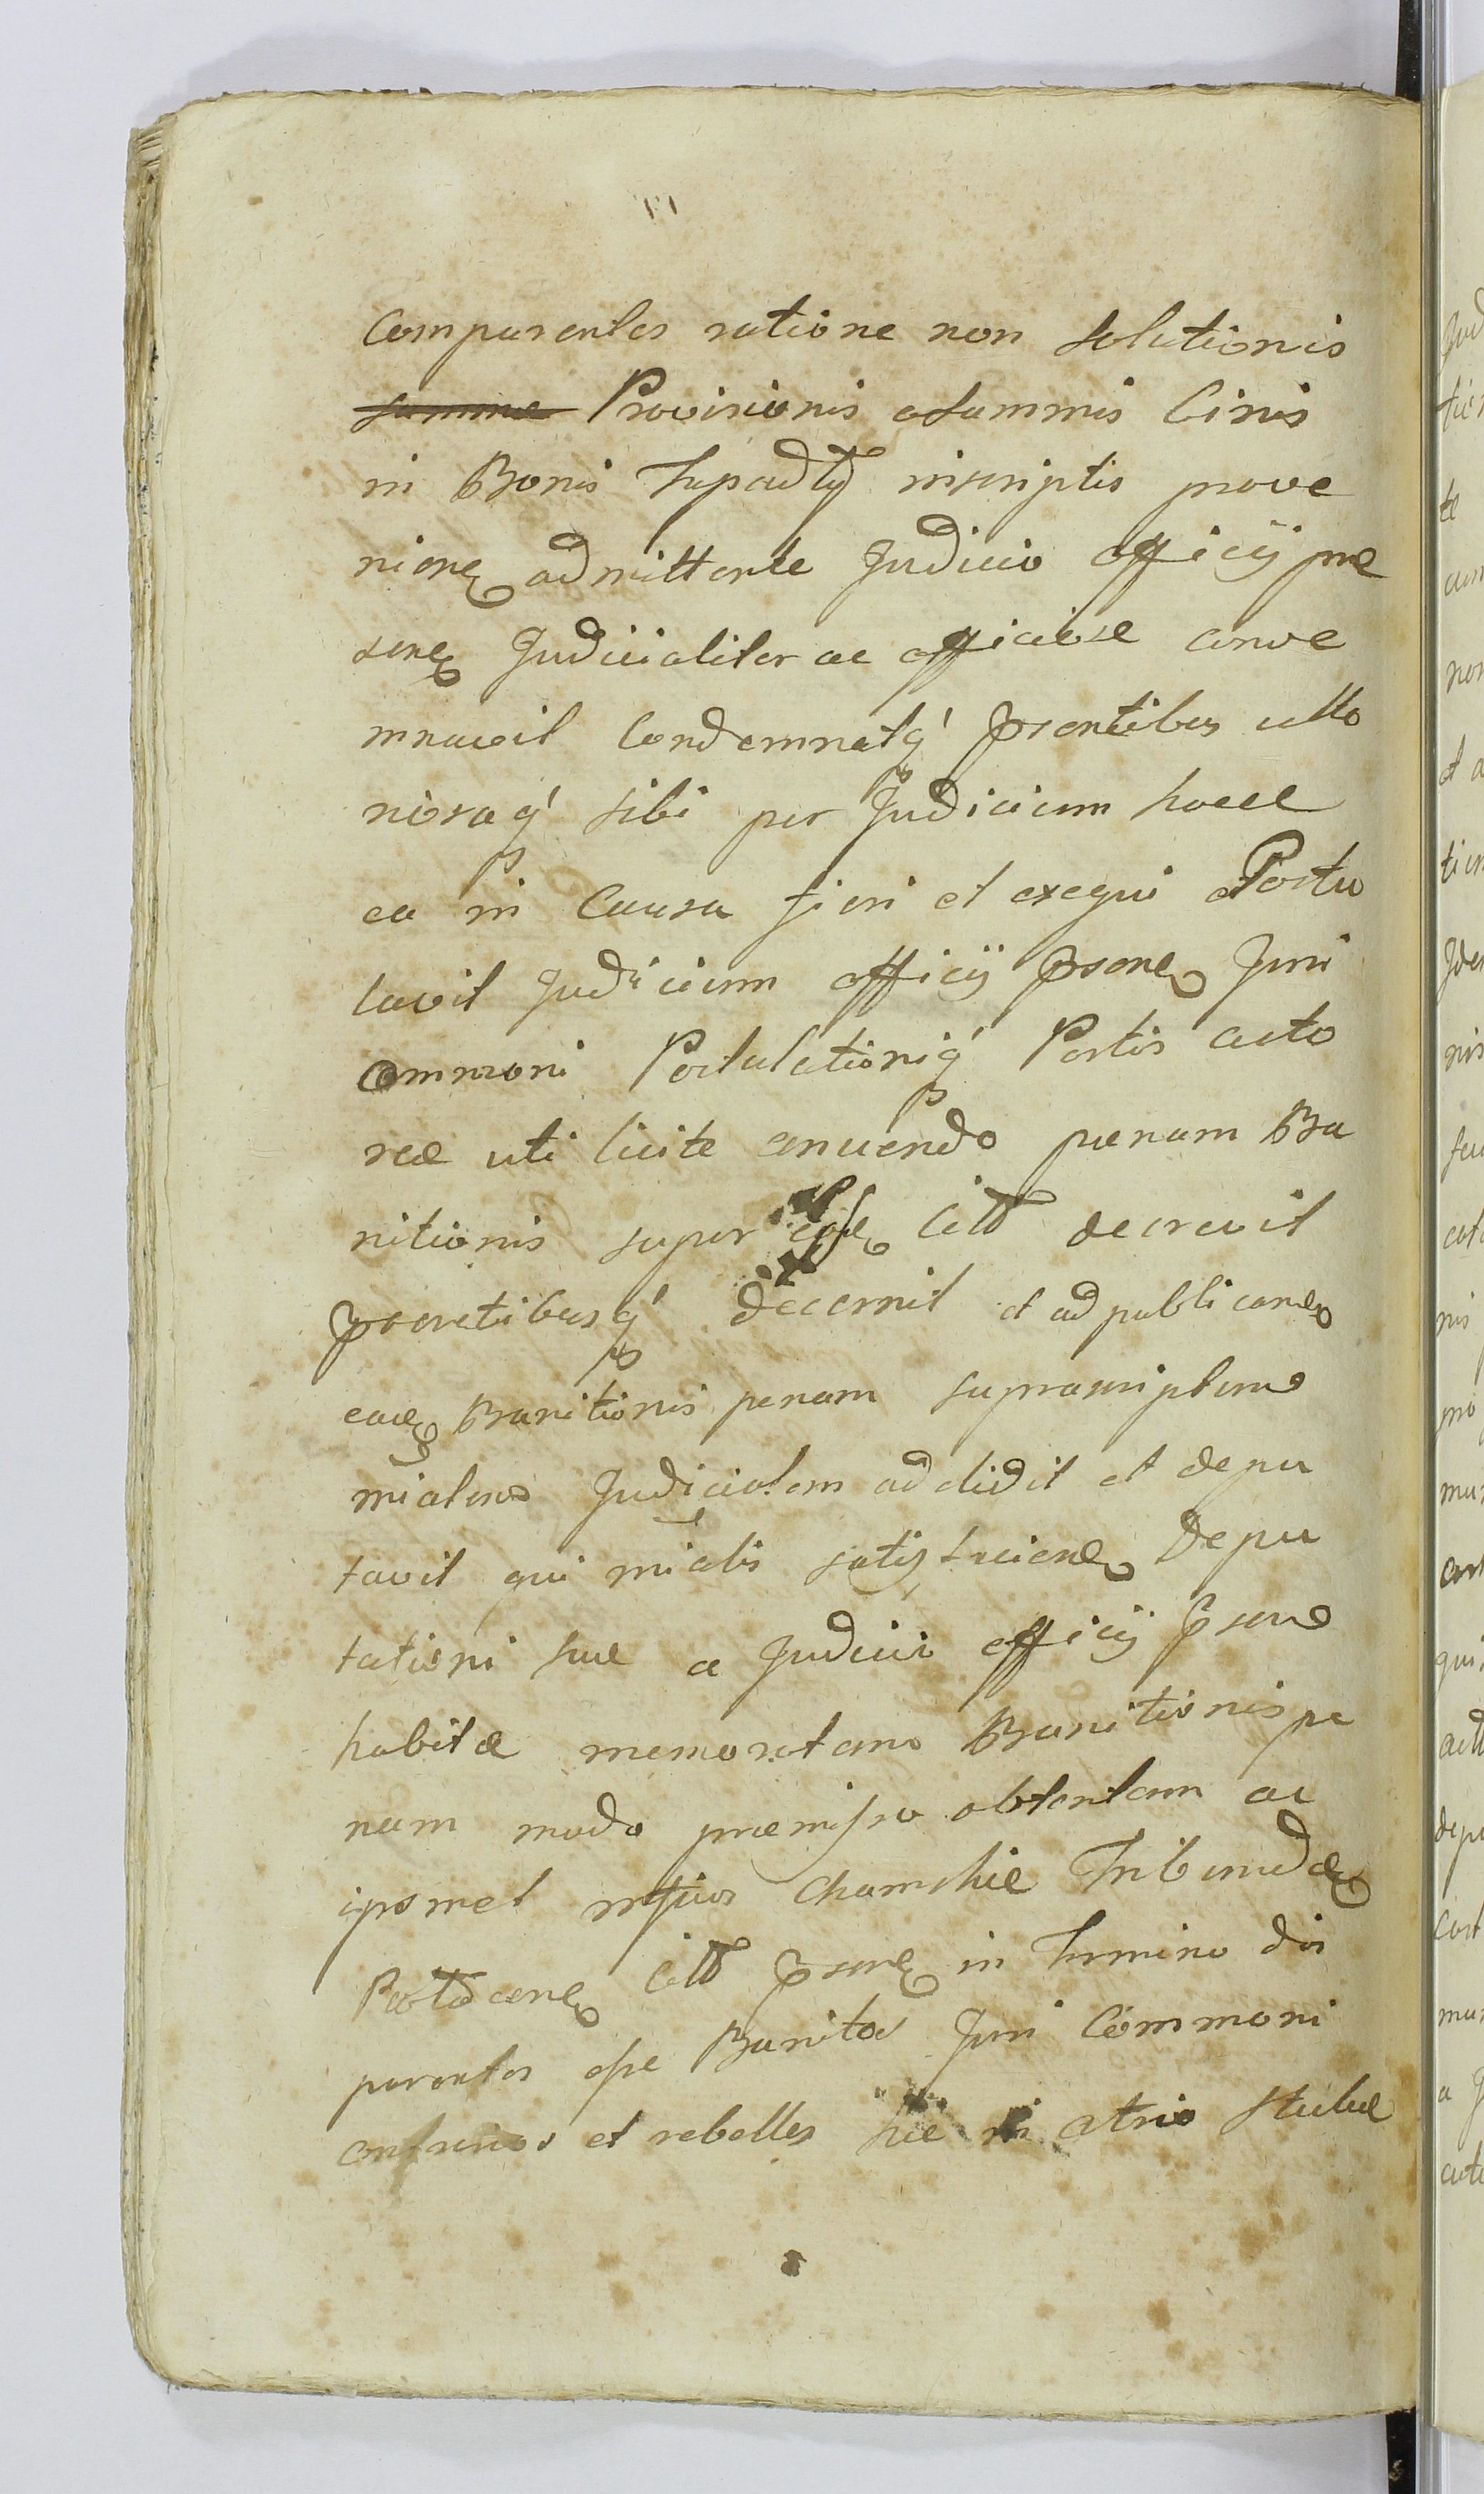 Comparentes ratione non Solutionis
summae Provisionis a summis Civis
in Bonis Supradty inscriptis prove
nienꝫ admittente Judicio officij prae
senꝫ Judicialiter ac officiose conde
mnavit Condemnatq́ꝫ pꝛsentibus ulto
rioraq́ꝫ sibi per Judicium hocce
ea in Causa fieri et exequi Postu
lavit Judicium officij pꝛsenꝫ Juri
communi Postulationiq́ꝫ Partis acto
reae uti licite annuendo paenam Ba
nitionis super Citt decrevit
pꝛsentibusq́ꝫ decernit et ad publicanꝫ
eanꝫ Banitionis penam suprascriptum
mialem Judicialem addidit et depu
tavit qui mialis satisfacienꝫ Depu
tationi suae a Judicio officij pꝛsens
habitae memoratam Banitionis pe
nam modo praemisso obtentam ac
ipsmet Tribunadꝫ
Citt pꝛsenꝫ in Termino
parentes esse Banitos Juri Communi
et rebelles hic in atrio Stubae